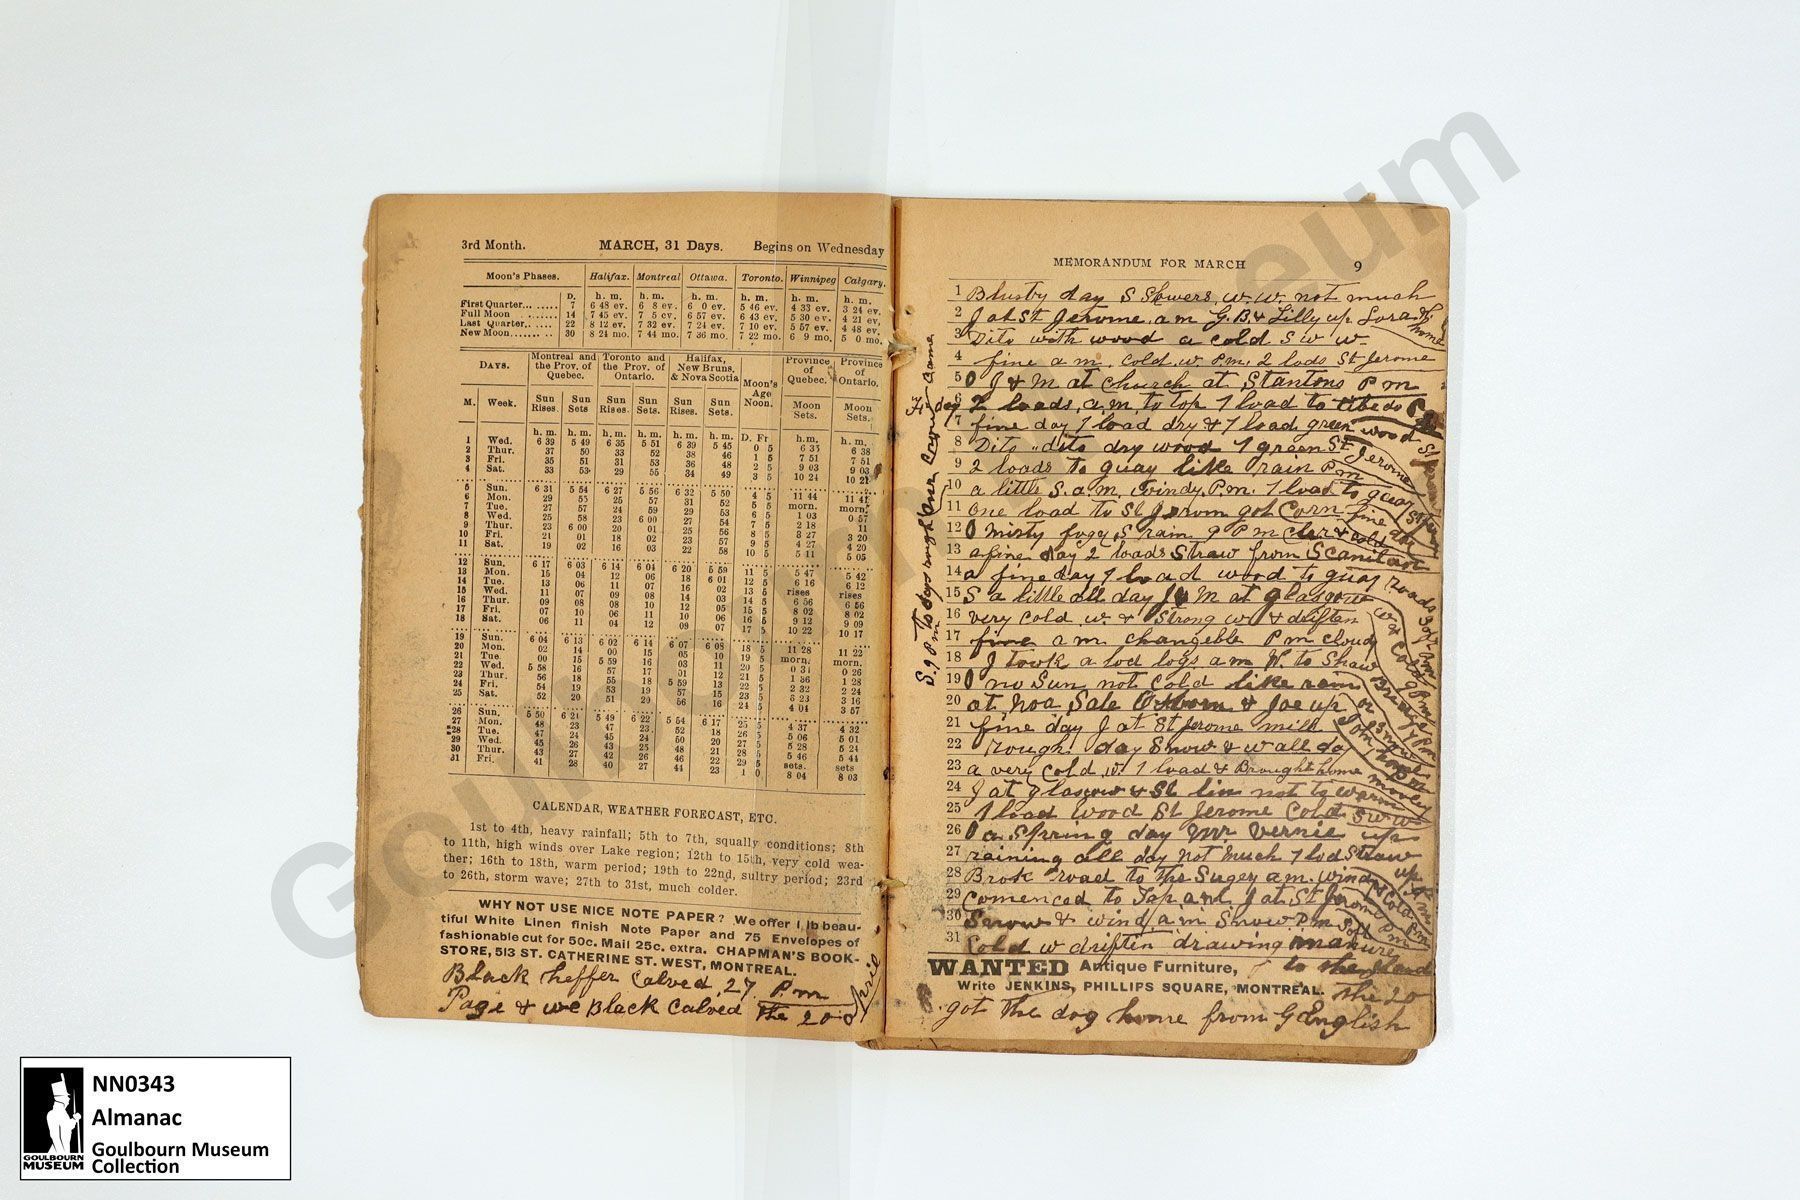 3rd Month. MARCH, 31 Days. Begins on Wednesday
Moon's Phases. Halifax. Montreal Ottawa. Toronto. Winnipeg Calgary.
D. h. m. h. m. h. m. h. m. h. m. h. m.
First Quarter... 7 6 48 ev. 6 8 ev. 6 0 ev. 5 46 ev. 4 33 ev. 3 24 ev.
Full Moon 14 7 45 ev. 7 5 ev. 6 57 ev. 6 43 ev. 5 30 ev. 4 21 ev.
Last Quarter... 22 8 12 ev. 7 32 ev. 7 24 ev. 7 10 ev. 5 57 ev. 4 48 ev.
New Moon... 30 8 24 mo. 7 44 mo. 7 36 mo. 7 22 mo. 6 9 mo. 5 0 mo.
DAYS. Montreal and the Prov. of Quebec. Toronto and the Prov. of Ontario. Halifax, New Bruns, & Nova Scotia Moon's Age Noon. Province of Quebec. Province of Ontario.
M. Week. Sun Rises. Sun Sets Sun Rises. Sun Sets. Sun Rises. Sun Sets. Moon Sets. Moon Sets.
h. m. h. m. h. m. h. m. h. m. h. m. D. Fr h. m. h. m.
1 Wed. 6 39 5 49 6 35 5 51 6 39 5 45 0 5 6 35 6 38
2 Thur. 37 50 33 52 38 46 1 5 7 51 7 51
3 Fri. 35 51 31 53 36 48 2 5 9 03 9 03
4 Sat. 33 53 29 55 34 49 3 5 10 24 10 21
5 Sun. 6 31 5 54 6 27 5 56 6 32 5 50 4 5 11 44 11 41
6 Mon. 29 55 25 57 31 52 5 5 morn. morn.
7 Tue. 27 57 24 59 29 53 6 5 1 03 0 57
8 Wed. 25 58 23 6 00 27 54 7 5 2 18
9 Thur. 23 6 00 20 01 25 56 8 5 3 27 3 20
10 Fri. 21 01 18 02 23 57 9 5 4 27 4 20
11 Sat. 19 02 16 03 22 58 10 5 5 11 5 05
12 Sun. 6 17 6 03 6 14 6 04 6 20 5 59 11 5 5 47 5 42
13 Mon. 15 04 12 06 18 6 01 12 5 6 16 6 12
14 Tue. 13 06 11 07 16 02 13 5 rises rises
15 Wed. 11 07 09 08 14 03 14 5 6 56 6 56
16 Thur. 09 08 08 10 12 05 15 5 8 02 8 02
17 Fri. 07 10 06 11 10 06 16 5 9 12 9 09
18 Sat. 06 11 04 12 09 07 17 5 10 22 10 17
19 Sun. 6 04 6 13 6 02 6 14 6 07 6 08 18 5 11 28 11 22
20 Mon. 02 14 00 15 05 10 19 5 morn. morn.
21 Tue. 00 15 5 59 16 03 11 20 5 0 34 0 26
22 Wed. 5 58 16 57 17 01 12 21 5 1 36 1 28
23 Thur. 56 18 55 18 5 59 13 22 5 2 32 2 24
24 Fri. 54 19 53 19 57 15 23 5 3 23 3 16
25 Sat. 52 20 51 20 56 16 24 5 4 04 3 57
26 Sun. 5 50 6 21 5 49 6 22 5 54 6 17 25 5 4 37 4 32
27 Mon. 48 23 47 23 52 18 26 5 5 06 5 01
28 Tue. 47 24 45 24 50 20 27 5 5 28 5 24
29 Wed. 45 26 43 25 48 21 28 5 5 46 5 44
30 Thur. 43 27 42 26 46 22 29 5 sets. sets
31 Fri. 41 28 40 27 44 23 1 0 8 04 8 03
CALENDAR, WEATHER FORECAST, ETC.
1st to 4th, heavy rainfall; 5th to 7th, squally conditions; 8th
to 11th, high winds over Lake region; 12th to 15th, very cold wea-
ther; 16th to 18th, warm period; 19th to 22nd, sultry period; 23rd
to 26th, storm wave; 27th to 31st, much colder.
WHY NOT USE NICE NOTE PAPER? We offer 1 lb beau-
tiful White Linen finish Note Paper and 75 Envelopes of
fashionable cut for 50c. Mail 25c. extra. CHAPMAN'S BOOK-
STORE, 513 ST. CATHERINE ST. WEST, MONTREAL.
Black heffer Calved, 27 P.m
Page & we Black Calved the 20
April
MEMORANDUM FOR MARCH 9
1 Blusty day S Showers, w. w. not much
2 J at St Jerome, am G.B. & Lilly up
home
3 Dito with wood a cold S w w
4 fine a m. cold. w P.m. 2 lods St Jerome
5 0 J & M at Church at Stantons P m
6 2 loads, a.m, to top 1 load to
7 fine day 1 load dry & 1 load green wood
8 Dito " dito dry wood 1 green St Jerome
9 2 loads to quay like rain Pm
10 a little S. a.m, windy. P.m. 1 load to quay
11 One load to St Jerom got Corn fine day
12 0 misty fogey S rain 9 Pm & cold
13 a fine day 2 loads Straw from
14 a fine day 1 load wood to quay roads
15 S a little all day J & M at glasgow
16 very cold w. & strong w & driften
17 fine a m. changeble P m cloudy
18 J took a lod logs a m W. to Shaw
19 0 no Sun not cold like rain
20 at Noa Sale & Joe up
21 fine day J at St Jerome mill
22 rough day Snow & w all day
23 a very cold w. 1 load & Brought home
24 J at glasgow & St lin not to warm
money
25 1 load wood St Jerome Cold S w w
26 0 a Spring day Mr Vernie up
27 raining all day not much 1 lod Straw
28 Brok road to the Sugey am. wind
29 Comenced to Tap and J at St Jerome Pm
30 Snow & wind a m Snow P.m
31 Cold w driften drawing manure
to the
WANTED Antique Furniture,
Write JENKINS, PHILLIPS SQUARE, MONTREAL.
the 20
got the dog home from G English
Goulbourn Museum
NN0343
Almanac
Goulbourn Museum
Collection
GOULBOURN
MUSEUM